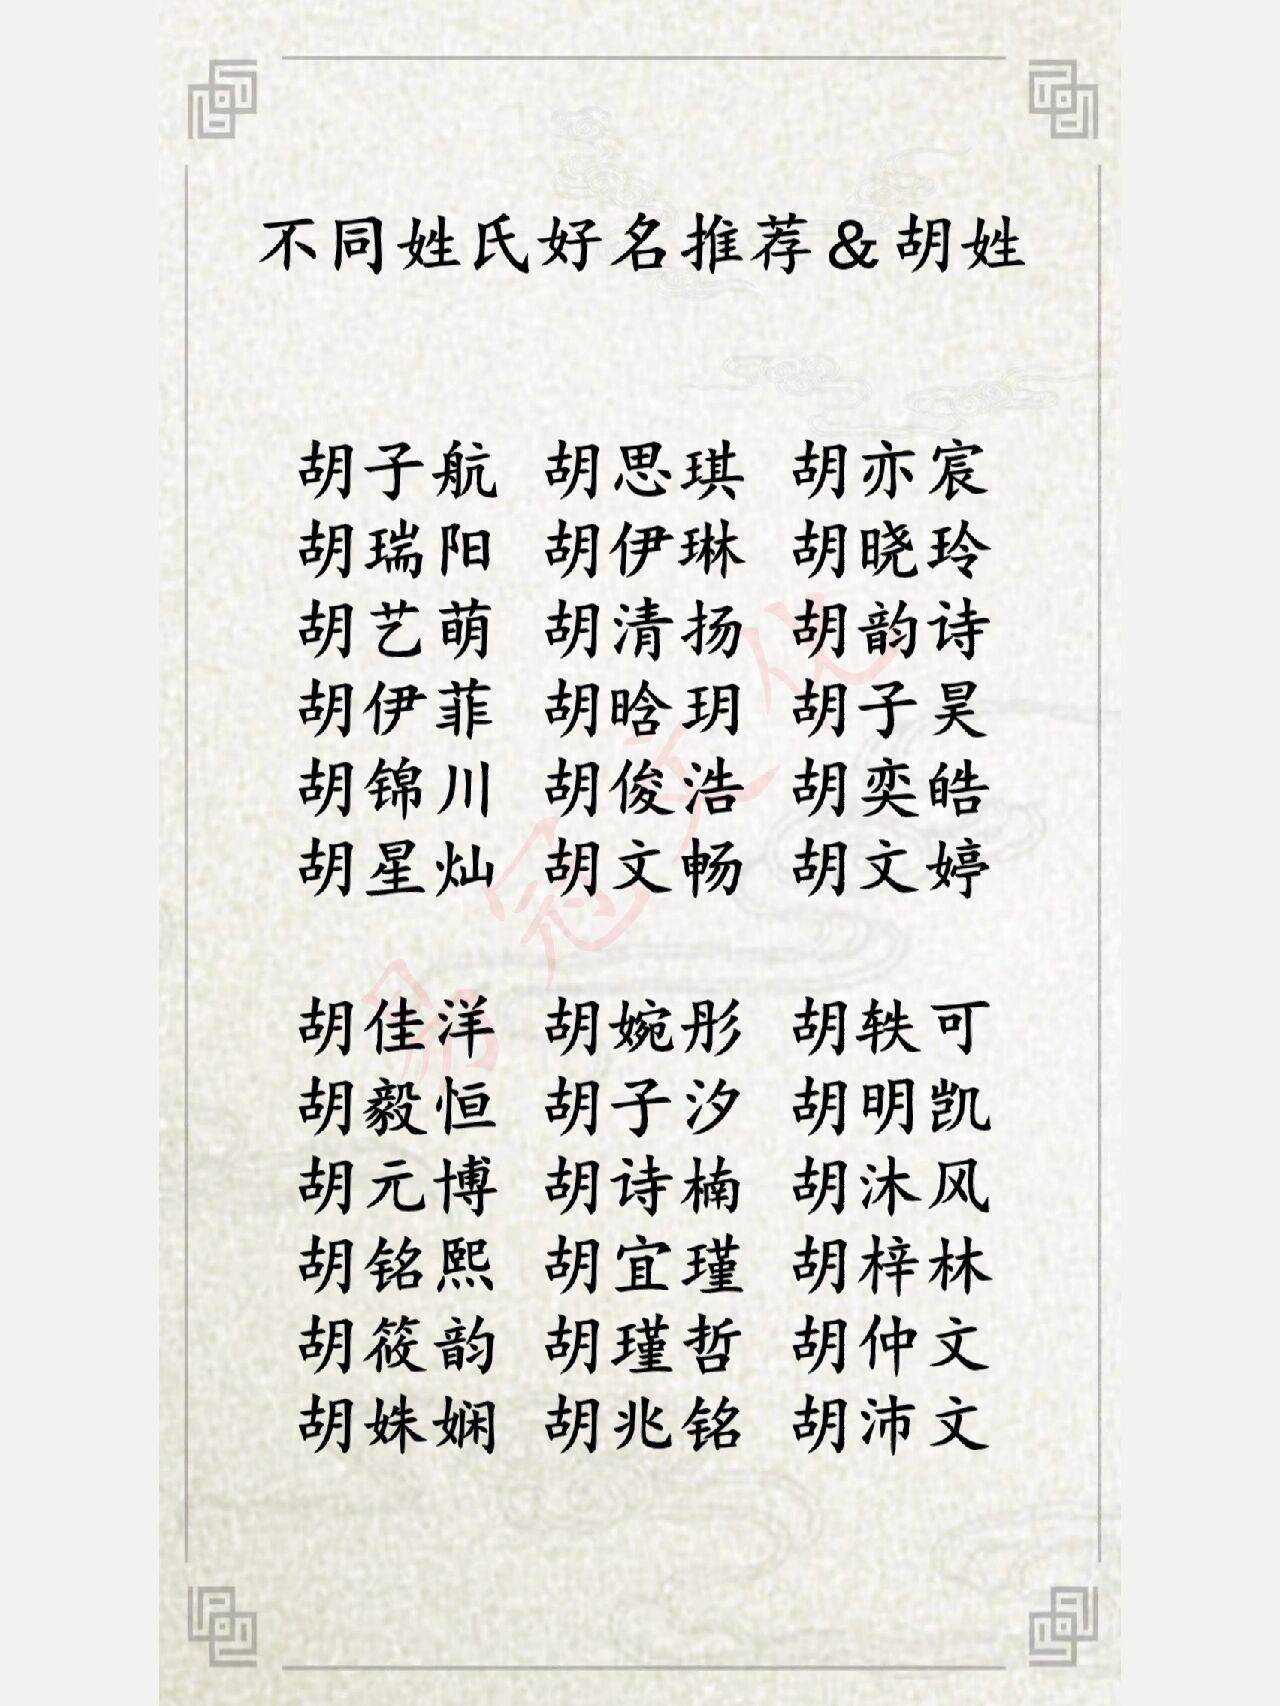 不同姓氏好名推荐&胡姓
胡子航 胡思琪 胡亦宸
胡瑞阳 胡伊琳 胡晓玲
胡艺萌 胡清扬 胡韵诗
胡伊菲 胡晗玥 胡子昊
胡锦川 胡俊浩 胡奕皓
胡星灿 胡文畅 胡文婷
胡佳洋 胡婉彤 胡轶可
胡毅恒 胡子汐 胡明凯
胡元博 胡诗楠 胡沐风
胡铭熙 胡宜瑾 胡梓林
胡筱韵 胡瑾哲 胡仲文
胡姝娴 胡兆铭 胡沛文
易冠文化